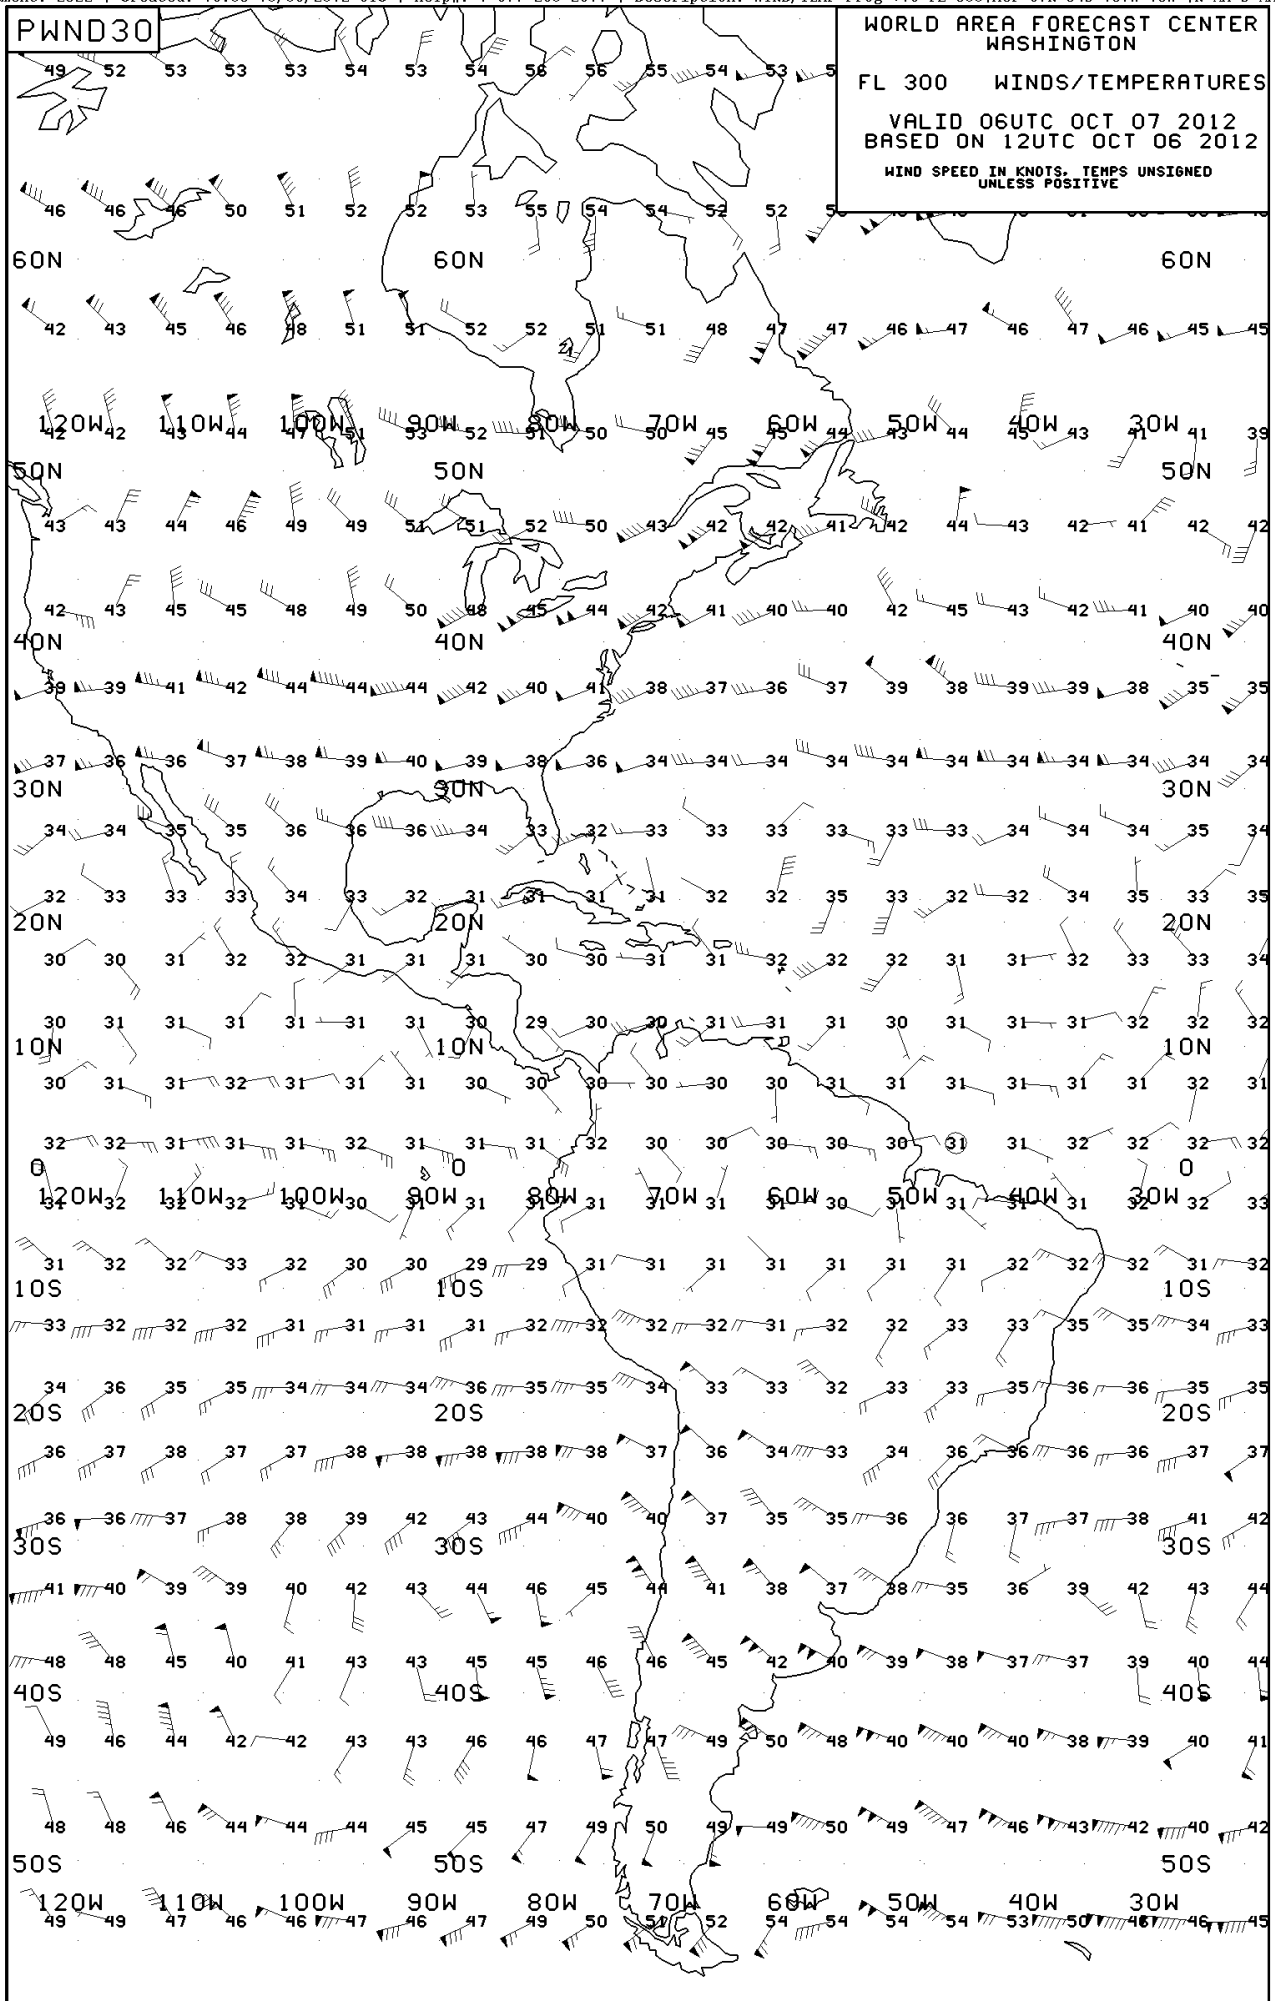 PWND30
WORLD AREA FORECAST CENTER
WASHINGTON
FL 300 WINDS/TEMPERATURES
VALID 06UTC OCT 07 2012
BASED ON 12UTC OCT 06 2012
WIND SPEED IN KNOTS, TEMPS UNSIGNED
UNLESS POSITIVE
49 52 53 53 53 54 53 54 56 56 55 54 53
46 46 46 50 51 52 52 53 55 54 54 52 52
60N 60N 60N
42 43 45 46 48 51 51 52 52 51 51 48 47 47 46 47 46 47 46 45 45
120W 110W 100W 90W 80W 70W 60W 50W 40W 30W
42 42 43 44 47 51 53 52 51 50 50 45 45 44 43 44 45 43 41 41 39
50N 50N 50N
43 43 44 46 49 49 51 51 52 50 43 42 42 41 42 44 43 42 41 42 42
42 43 45 45 48 49 50 48 45 44 42 41 40 40 42 45 43 42 41 40 40
40N 40N 40N
39 39 41 42 44 44 44 42 40 41 38 37 36 37 39 38 39 39 38 35 35
37 36 36 37 38 39 40 39 38 36 34 34 34 34 34 34 34 34 34 34 34
30N 30N 30N
34 34 35 35 36 36 36 34 33 32 33 33 33 33 33 33 34 34 34 35 34
32 33 33 33 34 33 32 31 31 31 31 32 32 35 33 32 32 34 35 33 35
20N 20N 20N
30 30 31 32 32 31 31 31 30 30 31 31 32 32 32 31 31 32 33 33 34
30 31 31 31 31 31 31 30 29 30 30 31 31 31 30 31 31 31 32 32 32
10N 10N 10N
30 31 31 32 31 31 31 30 30 30 30 30 30 31 31 31 31 31 31 32 31
32 32 31 31 31 32 31 31 31 32 30 30 30 30 30 31 31 32 32 32 32
0 0 0
120W 110W 100W 90W 80W 70W 60W 50W 40W 30W
31 32 32 32 31 30 31 31 31 31 31 31 31 30 31 31 31 31 32 32 33
31 32 32 33 32 30 30 29 29 31 31 31 31 31 31 31 32 32 32 31 32
10S 10S 10S
33 32 32 32 31 31 31 31 32 32 32 32 31 32 32 33 33 35 35 34 33
34 36 35 35 34 34 34 36 35 35 34 33 33 32 33 33 35 36 36 35 35
20S 20S 20S
36 37 38 37 37 38 38 38 38 38 37 36 34 33 34 36 36 36 36 37 37
36 36 37 38 38 39 42 43 44 40 40 37 35 35 36 36 37 37 38 41 42
30S 30S 30S
41 40 39 39 40 42 43 44 46 45 44 41 38 37 38 35 36 39 42 43 44
48 48 45 40 41 43 43 45 45 46 46 45 42 40 39 38 37 37 39 40 44
40S 40S 40S
49 46 44 42 42 43 43 46 46 47 47 49 50 48 40 40 40 38 39 40 41
48 48 46 44 44 44 45 45 47 49 50 49 49 50 49 47 46 43 42 40 42
50S 50S 50S
120W 110W 100W 90W 80W 70W 60W 50W 40W 30W
49 49 47 46 46 47 46 47 49 50 51 52 54 54 54 54 53 50 46 45